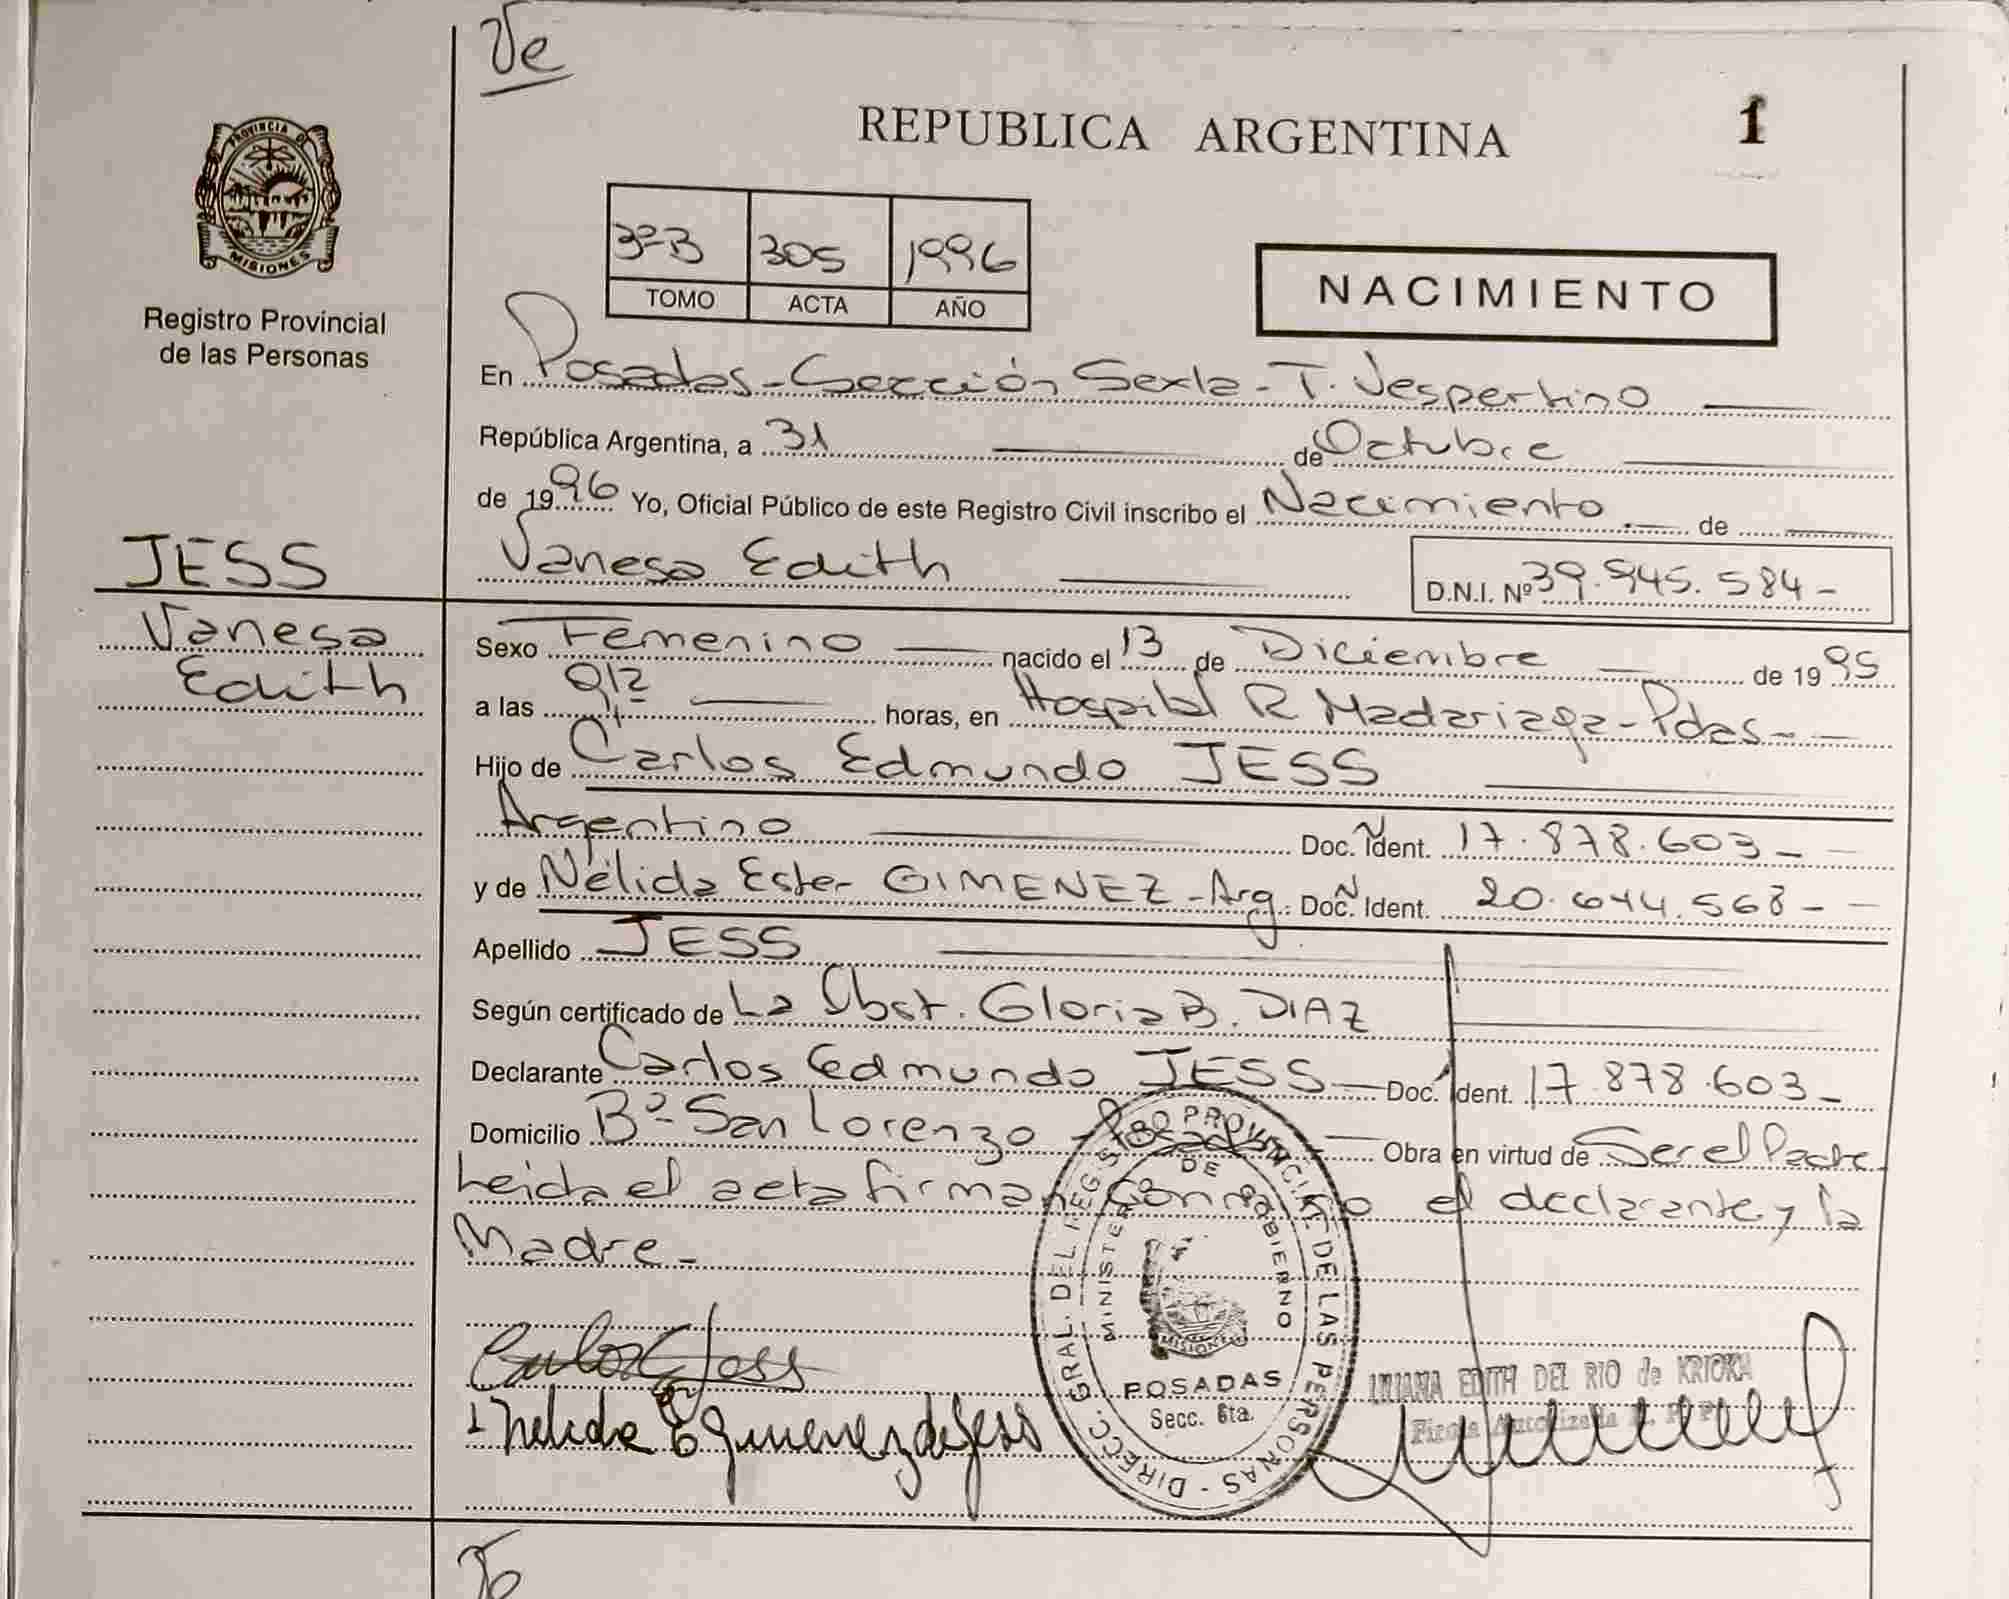 Ve
REPUBLICA ARGENTINA
1
PROVINCIA DE
MISIONES
Registro Provincial
de las Personas
3º B 305 1996
TOMO ACTA AÑO
NACIMIENTO
En Posadas - Sección Sexta - T. Vespertino
República Argentina, a 31 de Octubre
de 1996 Yo, Oficial Público de este Registro Civil inscribo el Nacimiento de
JESS
Vanesa Edith
D.N.I. Nº 39.945.584 -
Vanesa
Edith
Sexo Femenino nacido el 13 de Diciembre de 1995
a las horas, en Hospital R Madariaga - Pdas -
Hijo de Carlos Edmundo JESS
Argentino Doc. N Ident. 17.878.603 -
y de Nélida Ester GIMENEZ - Arg. Doc. N Ident. 20.644.568 -
Apellido JESS
Según certificado de La Obst. Gloria B. DIAZ
Declarante Carlos Edmundo JESS Doc. Ident. 17.878.603 -
Domicilio Bº San Lorenzo - Posadas Obra en virtud de Ser el Padre
Leida el acta firman conmigo el declarante y la
Madre -
DIRECC. GRAL. DEL REGISTRO PROVINCIAL DE LAS PERSONAS -
MINISTERIO DE GOBIERNO
MISIONES
POSADAS
Secc. 6ta.
Carlos E Jess
Nelida E Gimenez de Jess
LILIANA EDITH DEL RIO de KRIOKA
Firma Autorizada R. P. P.